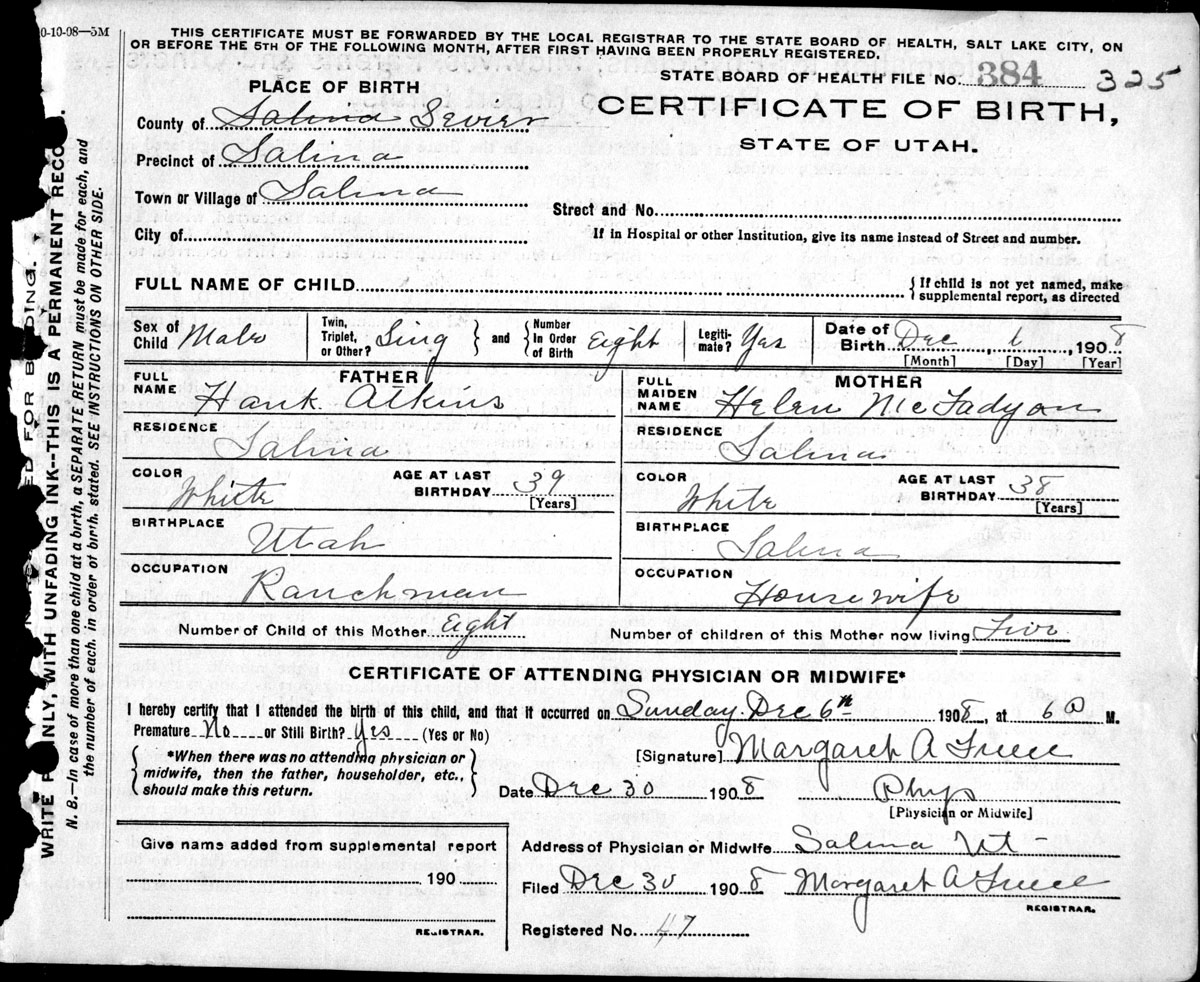 0-10-08—5M
THIS CERTIFICATE MUST BE FORWARDED BY THE LOCAL REGISTRAR TO THE STATE BOARD OF HEALTH, SALT LAKE CITY, ON
OR BEFORE THE 5TH OF THE FOLLOWING MONTH, AFTER FIRST HAVING BEEN PROPERLY REGISTERED.
STATE BOARD OF HEALTH FILE No. 384 325
PLACE OF BIRTH
CERTIFICATE OF BIRTH,
STATE OF UTAH.
County of Salina Sevier
Precinct of Salina
Town or Village of Salina
Street and No.
City of
If in Hospital or other Institution, give its name instead of Street and number.
FULL NAME OF CHILD
{If child is not yet named, make
supplemental report, as directed
Sex of Child Male
Twin, Triplet, or Other? Sing } and { Number In Order of Birth Eight
Legitimate? Yes
Date of Birth Dec, 6, 1908
[Month] [Day] [Year]
FATHER
FULL NAME Hank Atkins
MOTHER
FULL MAIDEN NAME Helen McFadyon
RESIDENCE Salina
RESIDENCE Salina
COLOR White AGE AT LAST BIRTHDAY 39 [Years]
COLOR White AGE AT LAST BIRTHDAY 38 [Years]
BIRTHPLACE Utah
BIRTHPLACE Salina
OCCUPATION Ranchman
OCCUPATION Housewife
Number of Child of this Mother Eight Number of children of this Mother now living Five
CERTIFICATE OF ATTENDING PHYSICIAN OR MIDWIFE*
I hereby certify that I attended the birth of this child, and that it occurred on Sunday Dec 6th 1908, at 6 a M.
Premature No or Still Birth? Yes (Yes or No)
{ *When there was no attending physician or
midwife, then the father, householder, etc.,
should make this return. }
[Signature] Margaret A
Date Dec 30 1908 Phys
[Physician or Midwife]
Give name added from supplemental report
190
REGISTRAR.
Address of Physician or Midwife Salina Ut
Filed Dec 30 1908 Margaret A
REGISTRAR.
Registered No. 47
WRITE NLY, WITH UNFADING INK--THIS IS A PERMANENT RECO
N. B.—In case of more than one child at a birth, a SEPARATE RETURN must be made for each, and
the number of each, in order of birth, stated. SEE INSTRUCTIONS ON OTHER SIDE.